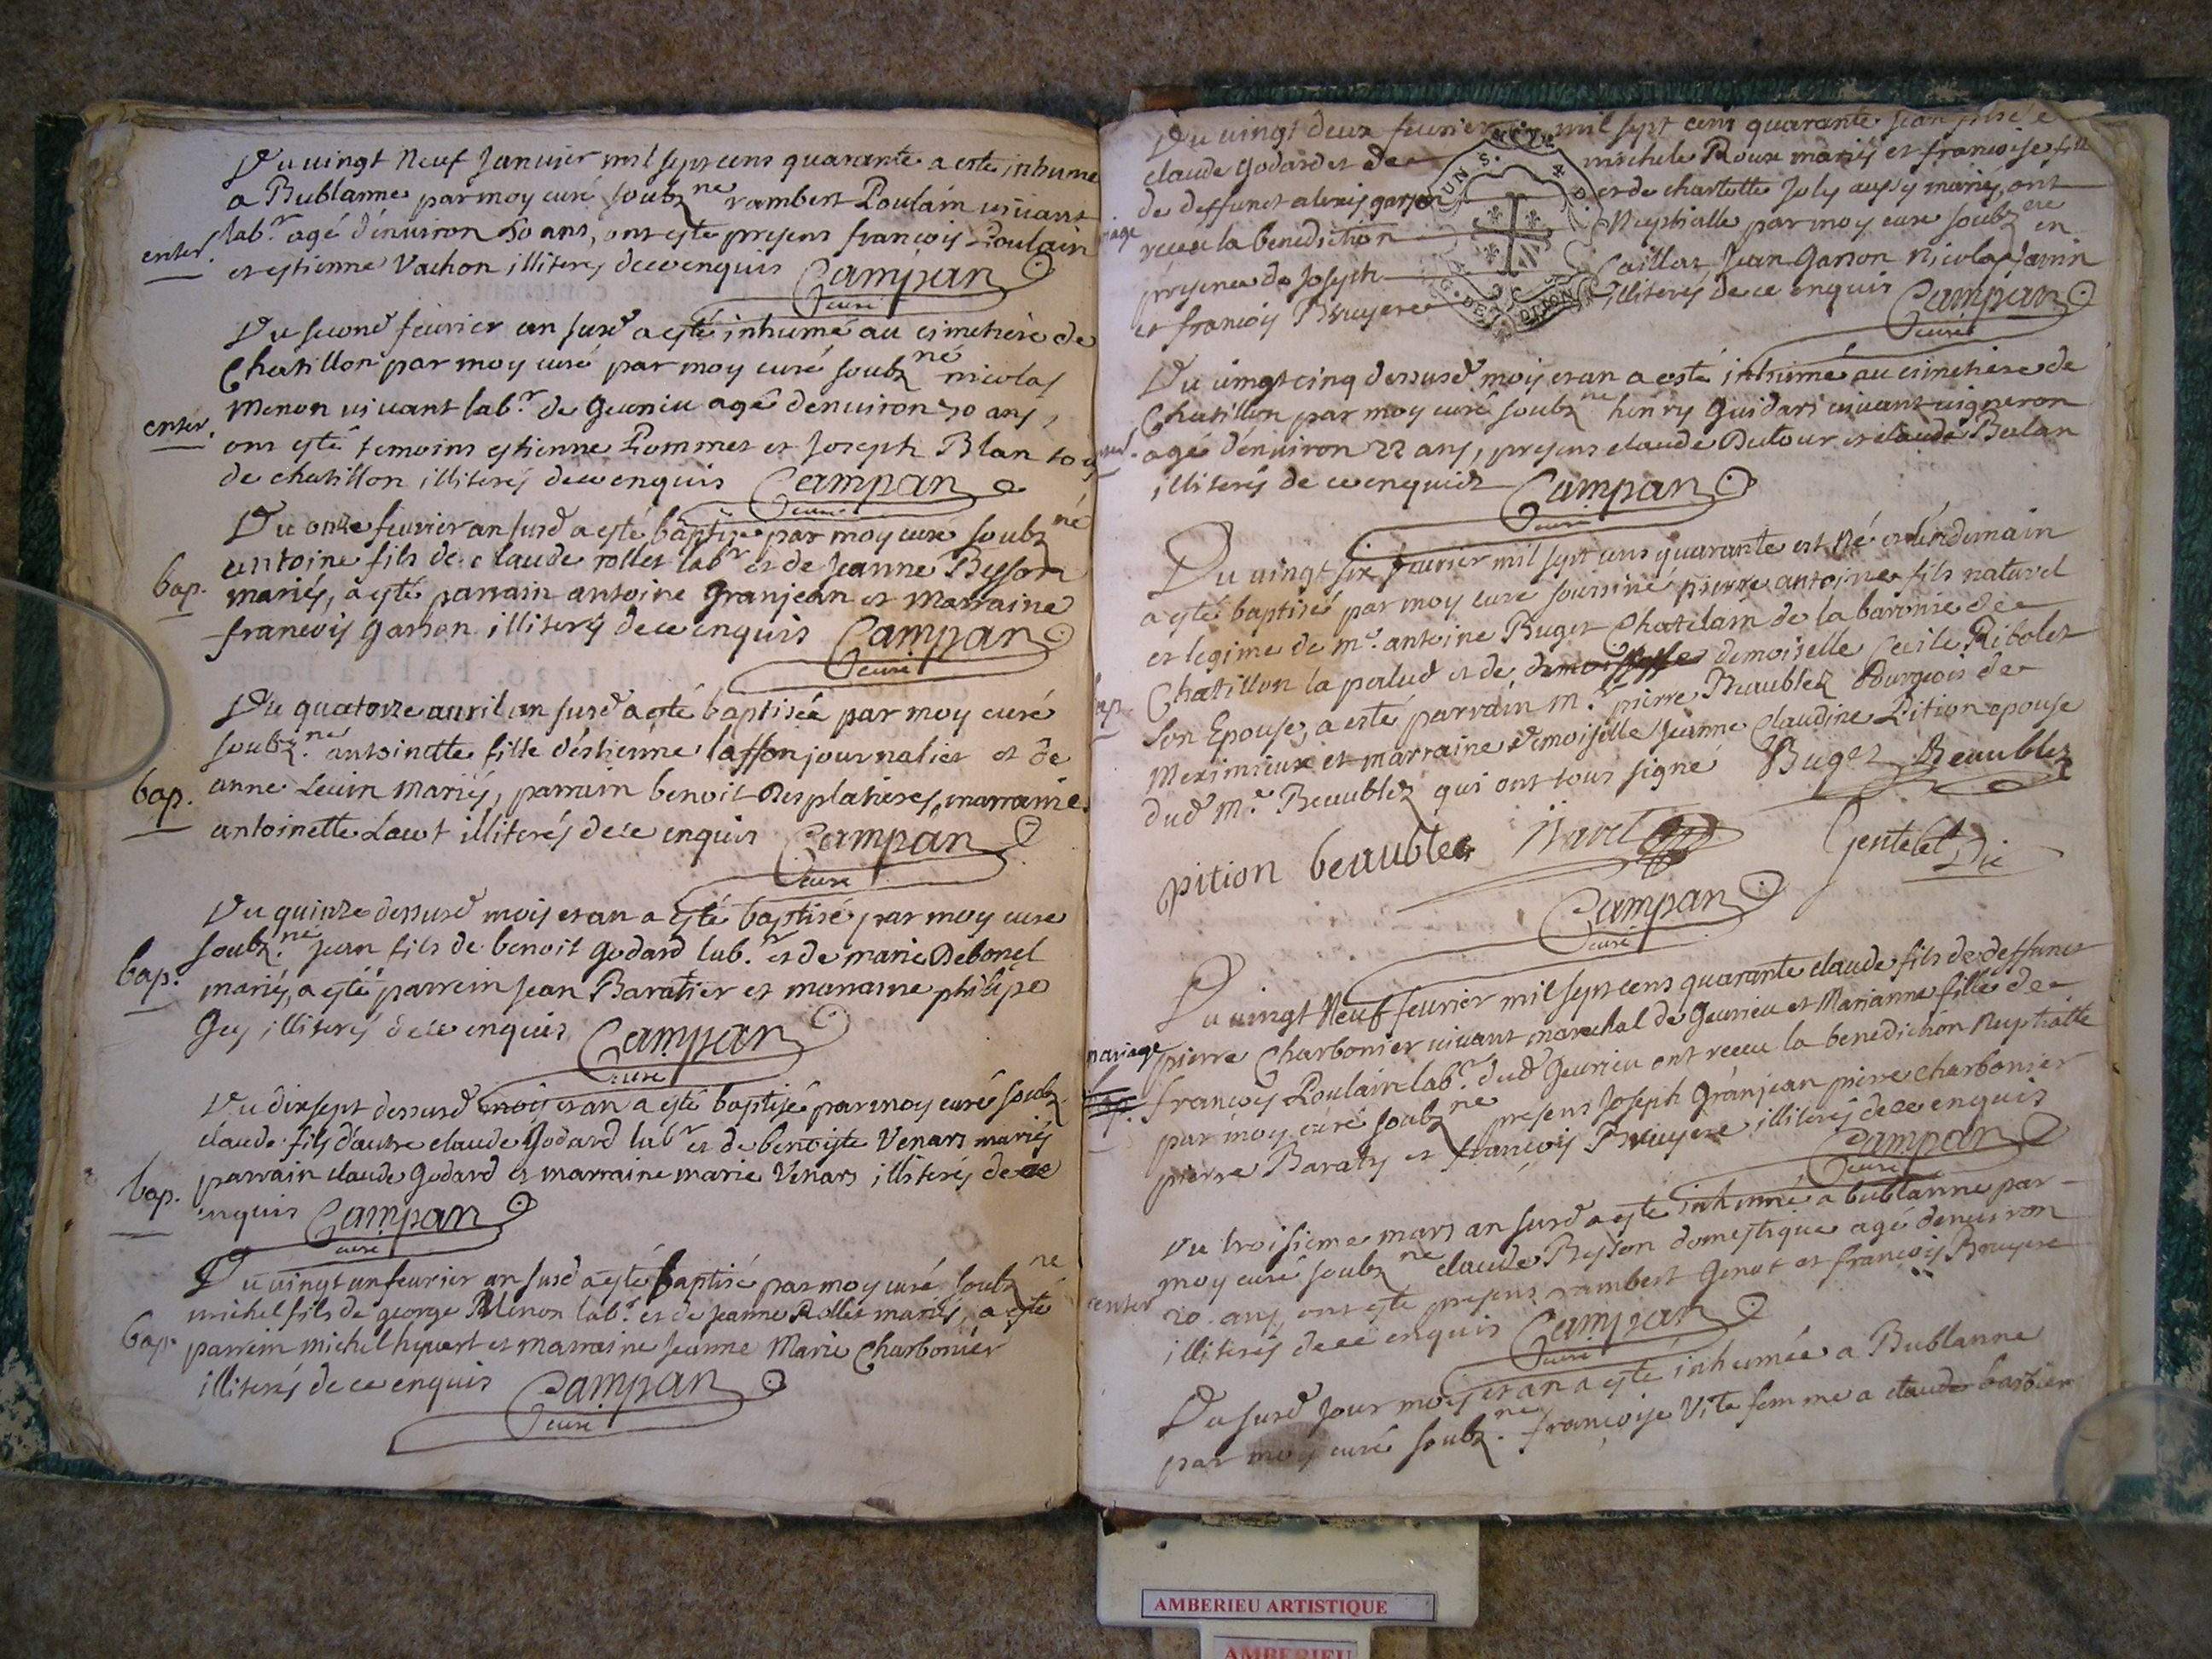 Du vingt Neuf Janvier mil sept cens quarante a esté inhumé
a Bublanne par moy curé soubz.né rambert Poulain vivant
enter. lab.r agé d'environ 50 ans, ont esté presens françois Poulain
et estienne Vachon illiterés de ce enquis Campan
curé
Du second fevrier an susd a esté inhumé au cimetiere de
Chatillon par moy curé par moy curé soubzné nicolas
Menon vivant lab.r de Gevrieu agé d'environ 70 ans,
enter. ont esté temoins estienne Pommet et Joseph Blan tous
de chatillon illiterés de ce enquis Campan
curé
Du onze fevrier an susd a esté baptisé par moy curé soubzné
antoine fils de claude rollet labr et de Jeanne Besson
bap. mariés, a esté parrain antoine Granjean et Marraine
françois Garson illiterés de ce enquis Campan
curé
Du quatorze avril an susd a esté baptisée par moy curé
soubz.né antoinette fille d'estienne laffon journalier et de
bap. anne Levin Mariés, parrain benoit Desplatieres, marraine
antoinette illiterés de ce enquis Campan
curé
Du quinze dessusd mois et an a esté baptisé par moy curé
soubz.né Jean fils de benoit Godard lab.r et de marie Debonel
bap. mariés, a esté parrein Jean Baratier et marraine philipe
Gey illiterés de ce enquis Campan
curé
Du dix sept dessusd mois et an a esté baptisé par moy curé soubz.
claude fils d'autre claude Godard labr et de benoiste Venars mariés
bap. parrain claude Godard et marraine marie Venars illiterés de ce
enquis Campan
curé
Du vingt un fevrier an susd a esté baptisé par moy curé soubzné
michel fils de george Menon lab.r et de Jeanne Rollet mariés, a esté
bap. parrein michel hquert et marraine Jeanne Marie Charbonier
illiterés de ce enquis Campan
curé
Du vingt deux fevrier mil sept cens quarante Jean fils de
claude Godard et de michele Roux mariés et françoise fille
de deffunct alexis garson et de charlotte Joly aussy mariés, ont
receu la benediction Nuptialle par moy curé soubzné en
presence de Joseph Caillat, Jean Garson Nicolas Janin
et françois Bruyere illiterés de ce enquis Campan
curé
Du vingt cinq dessusd mois et an a esté inhumé au cimetiere de
Chatillon par moy curé soubzné henry Guidari vivant vigneron
agé d'environ 22 ans, presens claude Dutour et claude Balan
illiterés de ce enquis Campan
curé
Du vingt six fevrier mil sept cens quarante est Né et lendemain
a esté baptisé par moy curé soussiné pierre antoine fils naturel
et legime de m.e antoine Buget Chatelain de la baronie de
bap. Chatillon la palud et de demoiselle Cecile Ribolet
Son Epouse, a esté parrain m.r pierre Beaublez Bourgeois de
Meximieux et marraine demoiselle Jeanne Claudine Pition epouse
dud M.r Beaublez qui ont tous signé Buget Beaublez
pition beaublez Gentelet
Campan
curé
Du vingt Neuf fevrier mil sept cens quarante claude fils de deffunct
mariage pierre Charbonier vivant marechal de Gevrieu et Marianne fille de
françois Poulain lab.r dud Gevrieu ont receu la benediction Nuptialle
par moy curé soubzné presens Joseph Granjean pierre charbonier
pierre Baraty et françois Bruyere illiterés de ce enquis
Campan
curé
Du troisieme mars an susd a esté inhumé a bublanne par
moy curé soubzné claude Besson domestique agé d'environ
enter 20 ans, ont esté presens rambert Genot et françois Bruyere
illiterés de ce enquis Campan
curé
Du susd Jour mois et an a esté inhumée a Bublanne
par moy curé soubz.né françoise Vite femme a claude barbier
G. DE DIJON
AMBERIEU ARTISTIQUE
AMBERIEU